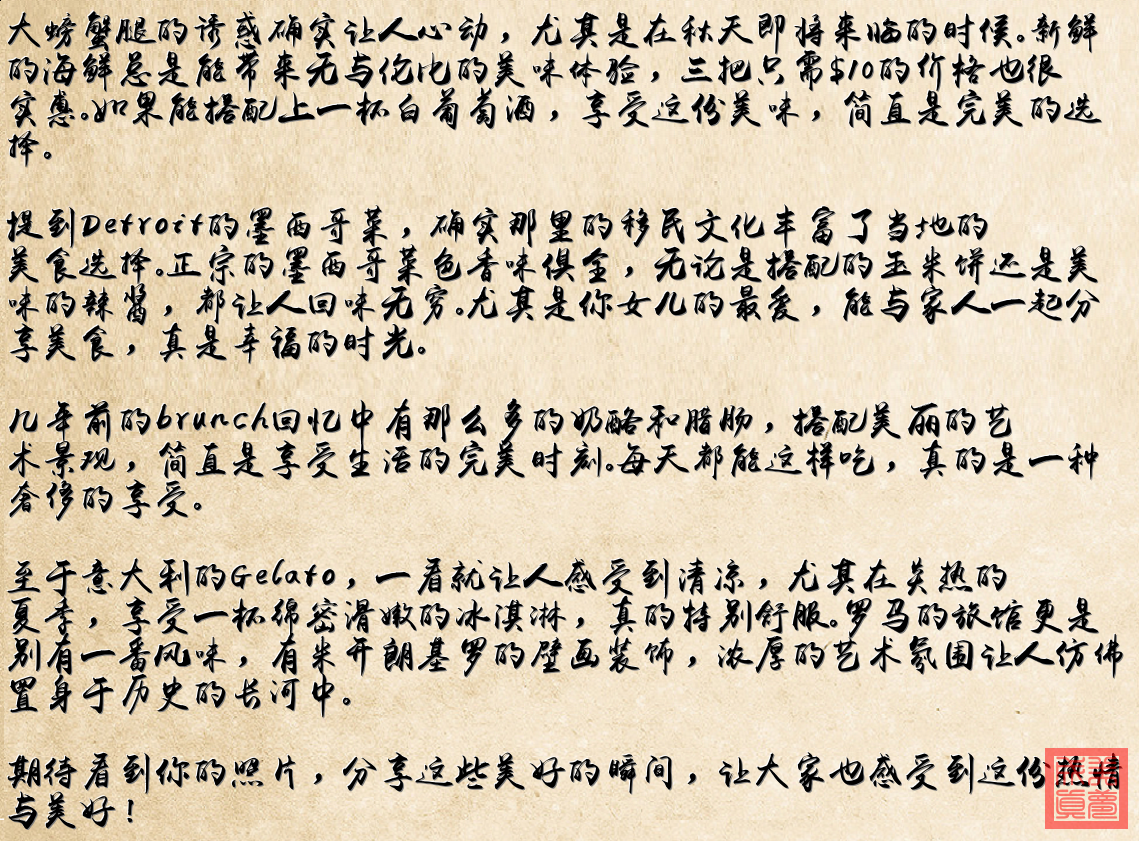 大螃蟹腿的诱惑确实让人心动，尤其是在秋天即将来临的时候。新鲜
的海鲜总是能带来无与伦比的美味体验，三把只需$10的价格也很
实惠。如果能搭配上一杯白葡萄酒，享受这份美味，简直是完美的选
择。
提到Detroit的墨西哥菜，确实那里的移民文化丰富了当地的
美食选择。正宗的墨西哥菜色香味俱全，无论是搭配的玉米饼还是美
味的辣酱，都让人回味无穷。尤其是你女儿的最爱，能与家人一起分
享美食，真是幸福的时光。
几年前的brunch回忆中有那么多的奶酪和腊肠，搭配美丽的艺
术景观，简直是享受生活的完美时刻。每天都能这样吃，真的是一种
奢侈的享受。
至于意大利的Gelato，一看就让人感受到清凉，尤其在炎热的
夏季，享受一杯绵密滑嫩的冰淇淋，真的特别舒服。罗马的旅馆更是
别有一番风味，有米开朗基罗的壁画装饰，浓厚的艺术氛围让人仿佛
置身于历史的长河中。
期待看到你的照片，分享这些美好的瞬间，让大家也感受到这份热情
与美好！